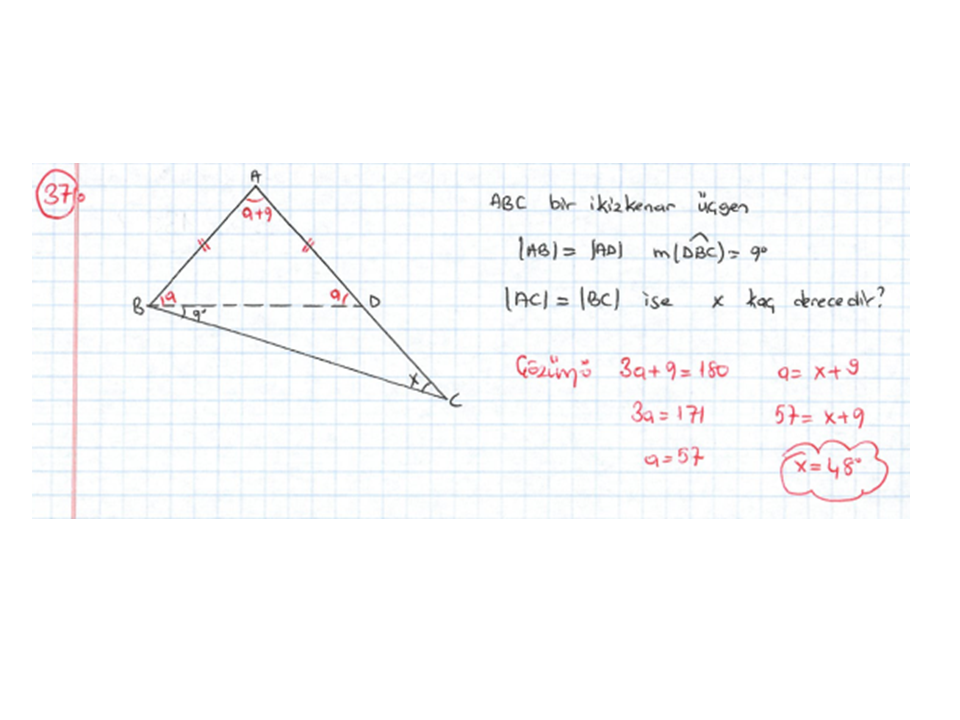 37.
A
a+9
B
a
a
D
9°
x
C
ABC bir ikizkenar üçgen
|AB| = |AD| m(DBC) = 9°
|AC| = |BC| ise x kaç derecedir?
Çözümü 3a+9=180 a= x+9
3a=171 57= x+9
a=57 x=48°